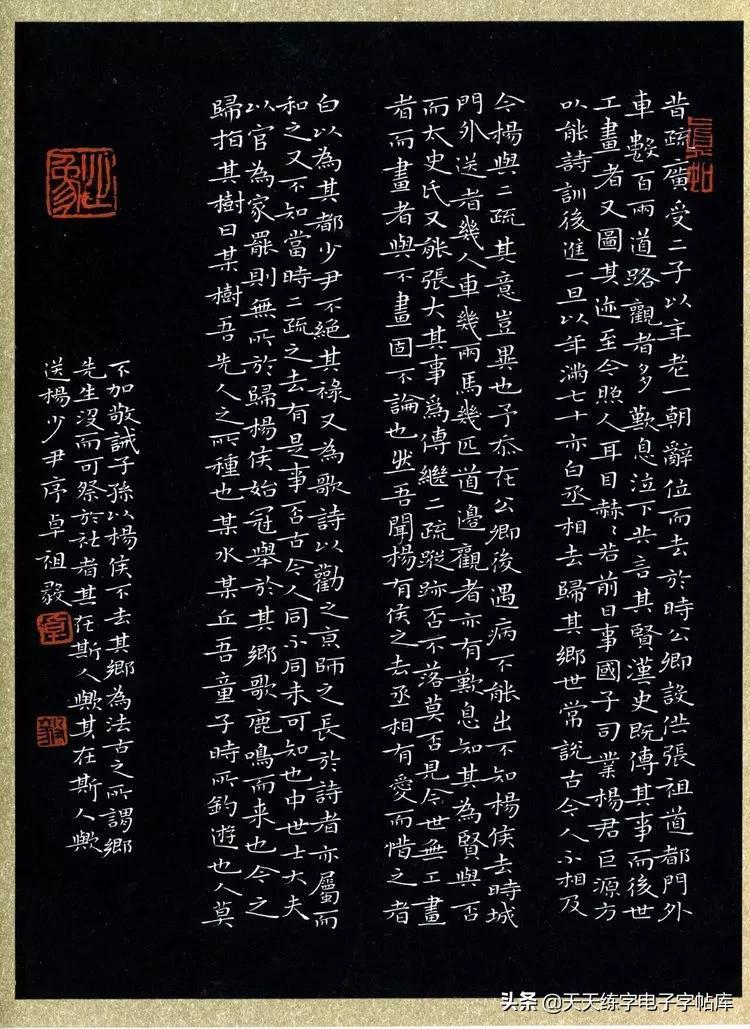 昔疏廣受二子以年老一朝辭位而去於時公卿設供張祖道都門外
車數百兩道路觀者多歎息泣下共言其賢漢史既傳其事而後世
工畫者又圖其迹至今照人耳目赫〻若前日事國子司業楊君巨源方
以能詩訓後進一旦以年滿七十亦白丞相去歸其鄉世常說古今人不相及
今楊與二疏其意豈異也予忝在公卿後遇病不能出不知楊侯去時城
門外送者幾人車幾兩馬幾匹道邊觀者亦有歎息知其為賢與否
而太史氏又能張大其事為傳繼二疏蹤跡否不落莫否見今世無工畫
者而畫者與不畫固不論也然吾聞楊有侯之去丞相有愛而惜之者
白以為其都少尹不絕其祿又為歌詩以勸之京師之長於詩者亦屬而
和之又不知當時二疏之去有是事否古今人同不同未可知也中世士大夫
以官為家罷則無所於歸楊侯始冠舉於其鄉歌鹿鳴而来也今之
歸指其樹曰某樹吾先人之所種也某水某丘吾童子時所釣遊也人莫
不加敬誡子孫以楊侯不去其鄉為法古之所謂鄉
先生沒而可祭於社者其在斯人歟其在斯人歟
送楊少尹序卓祖毅
頭条@天天练字电子字帖库